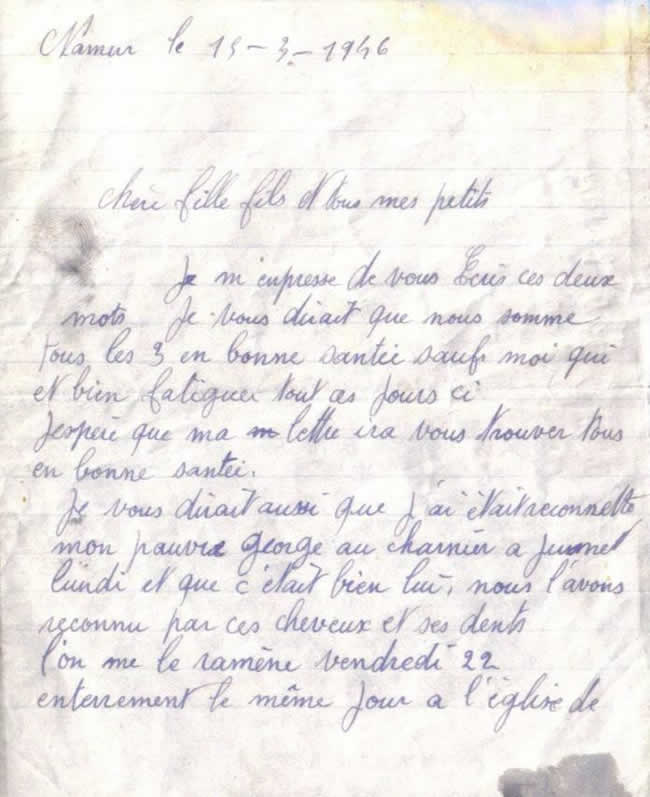 Namur le 15-3-1946
chère fille fils et tous mes petits
Je m'enpresse de vous Ecris ces deux
mots Je vous dirait que nous somme
tous les 3 en bonne santée sauf moi qui
et bien fatiguer tout ces jours ci
J'espère que ma lettre ira vous trouver tous
en bonne santée.
Je vous dirait aussi que J'ai était reconnette
mon pauvre george au charnier a Jumet
lundi et que c'était bien lui, nous l'avons
reconnu par ces cheveux et ses dents
l'on me le ramène vendredi 22
enterrement le même Jour a l'église de